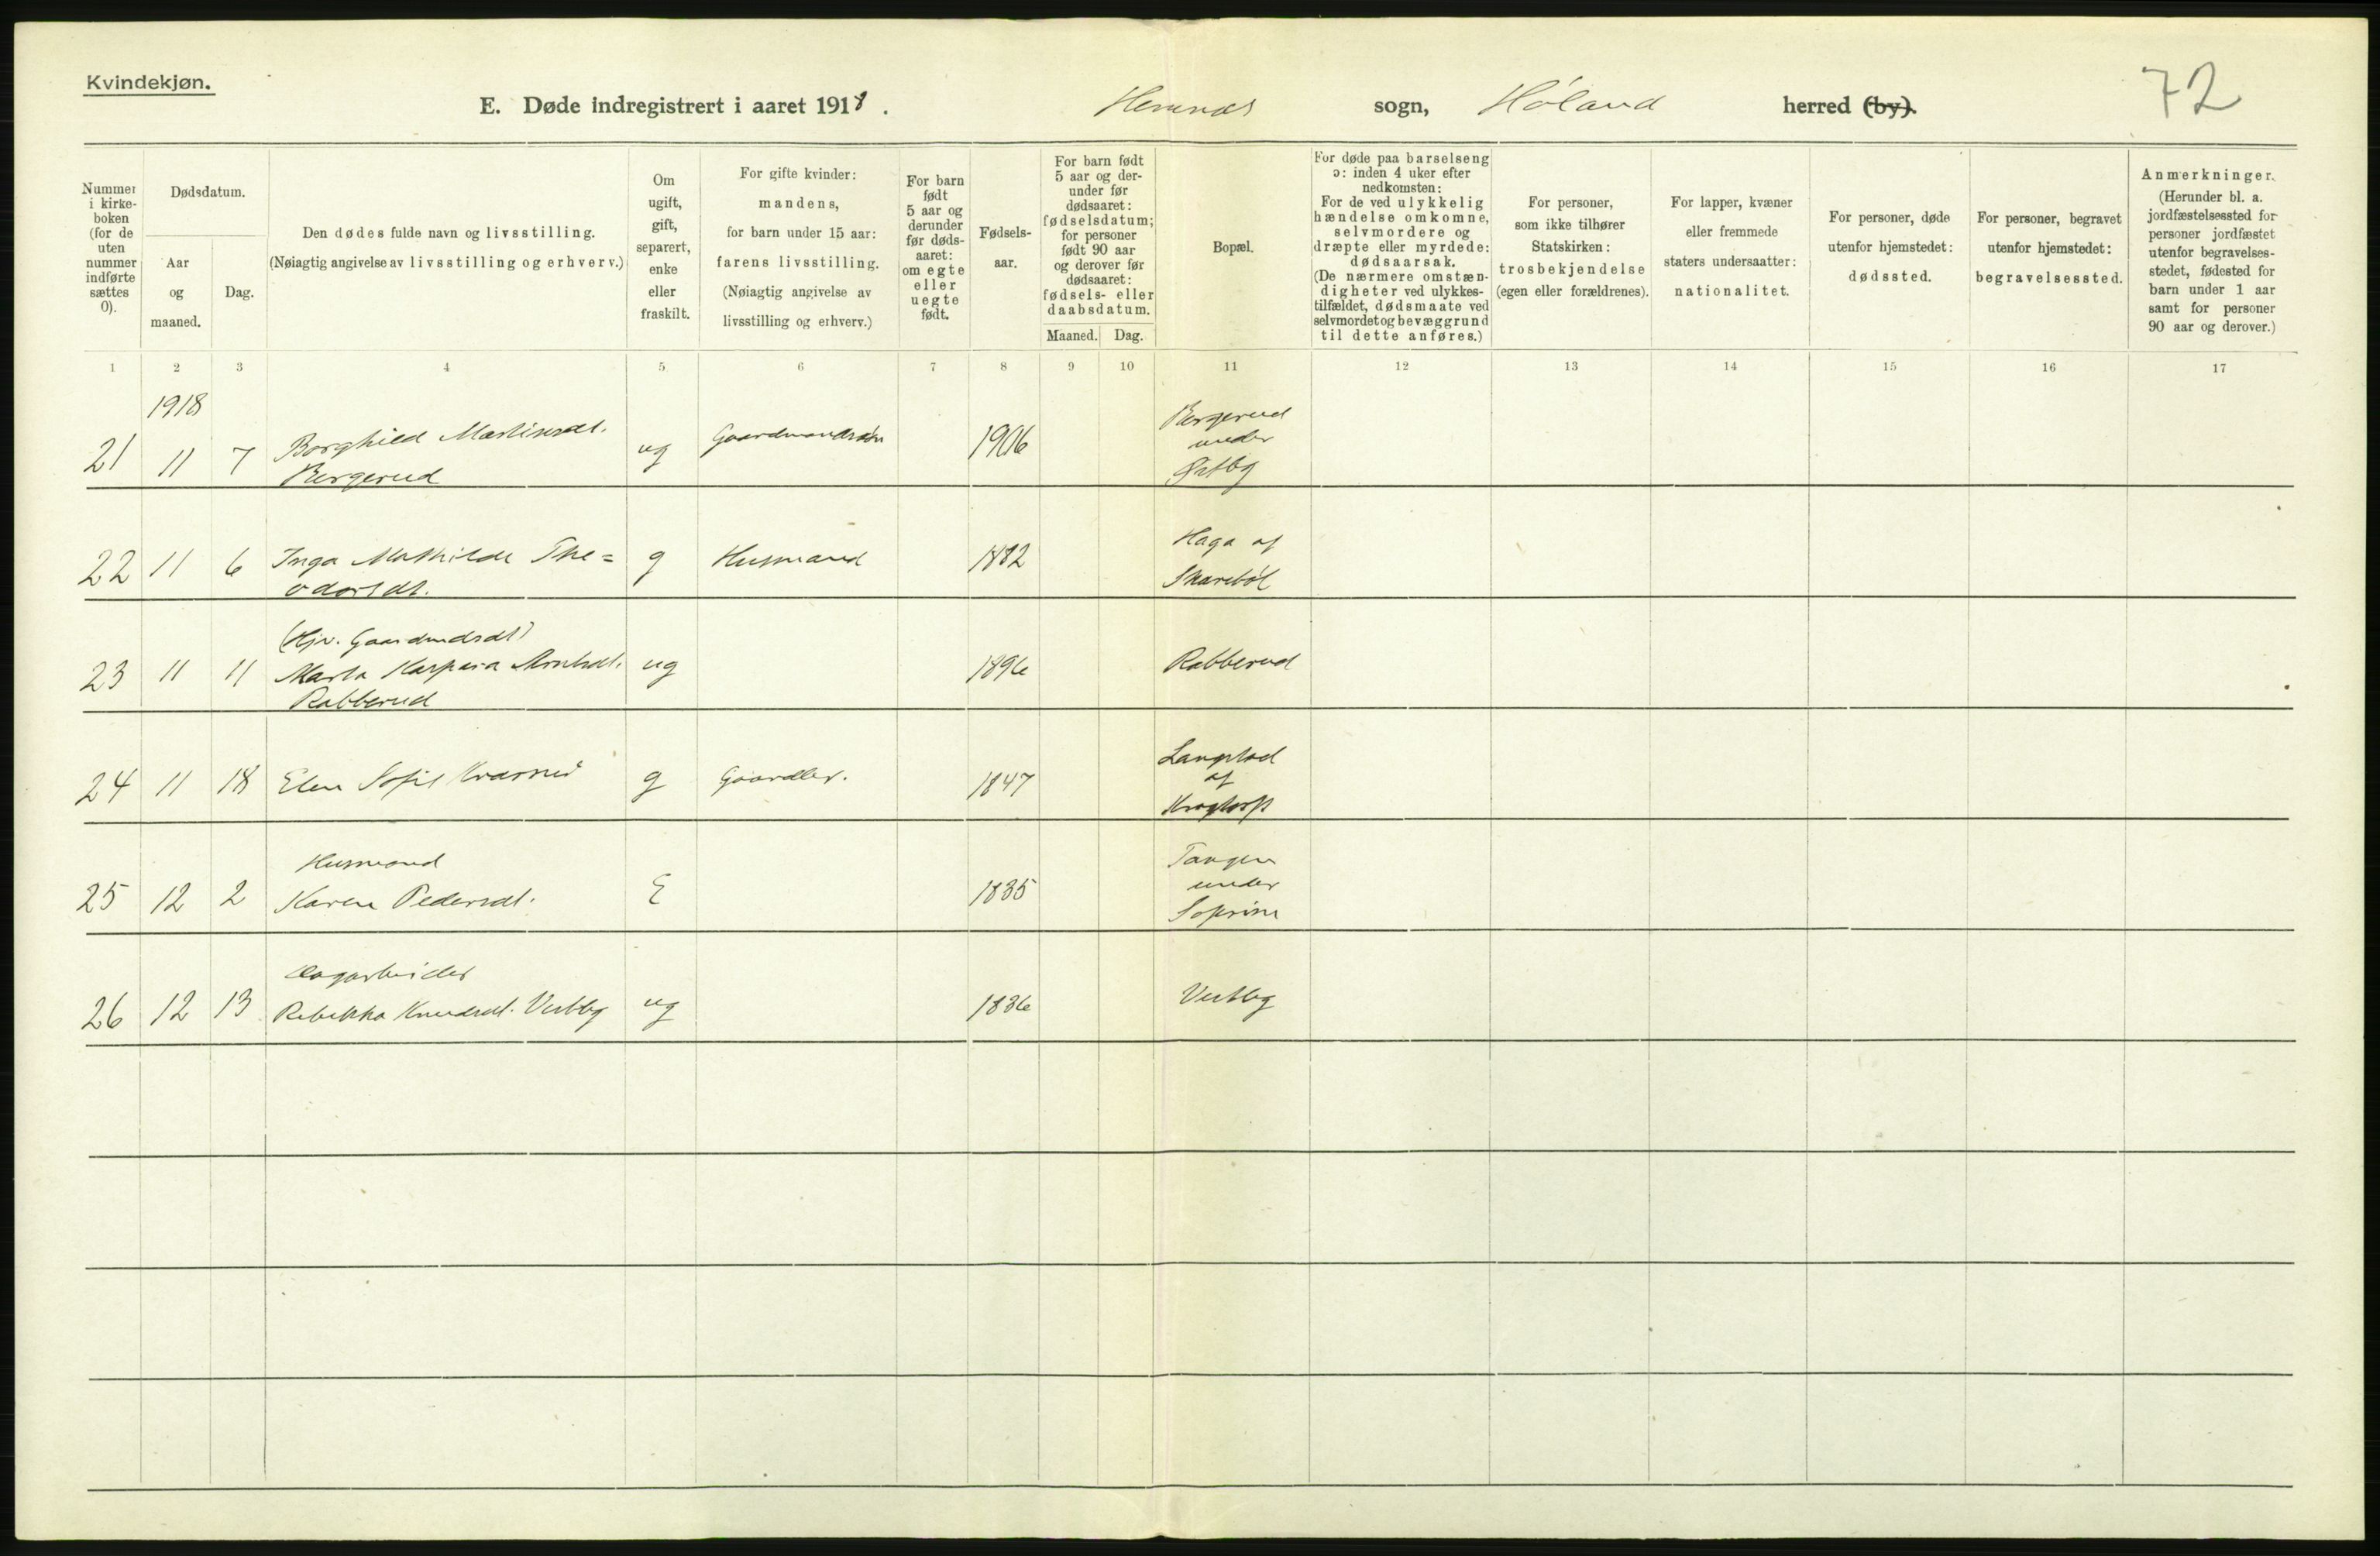 Kvindekjøn.
E. Døde indregistrert i aaret 1918. Hemnes sogn, Høland herred (by).
72
Nummer i kirke-boken (for de uten nummer indførte sættes 0).
Dødsdatum.
Aar og maaned.
Dag.
Den dødes fulde navn og livsstilling.
(Nøiagtig angivelse av livsstilling og erhverv.)
Om ugift, gift, separert, enke eller fraskilt.
For gifte kvinder: mandens, for barn under 15 aar: farens livsstilling. (Nøiagtig angivelse av livsstilling og erhverv.)
For barn født 5 aar og derunder før døds-aaret: om egte eller uegte født.
Fødsels-aar.
For barn født 5 aar og der-under før dødsaaret: fødselsdatum; for personer født 90 aar og derover før dødsaaret: fødsels- eller daabsdatum.
Maaned. Dag.
Bopæl.
For døde paa barselseng ɔ: inden 4 uker efter nedkomsten: For de ved ulykkelig hændelse omkomne, selvmordere og dræpte eller myrdede: dødsaarsak. (De nærmere omstæn-digheter ved ulykkes-tilfældet, dødsmaate ved selvmordet og bevæggrund til dette anføres.)
For personer, som ikke tilhører Statskirken: trosbekjendelse (egen eller forældrenes).
For lapper, kvæner eller fremmede staters undersaatter: nationalitet.
For personer, døde utenfor hjemstedet: dødssted.
For personer, begravet utenfor hjemstedet: begravelsessted.
Anmerkninger. (Herunder bl. a. jordfæstelsessted for personer jordfæstet utenfor begravelses-stedet, fødested for barn under 1 aar samt for personer 90 aar og derover.)
1 2 3 4 5 6 7 8 9 10 11 12 13 14 15 16 17
1918
21 11 7 Borghild Martinsdt. Bergerud ug 1906 Bergerud under Østby
22 11 6 Inga Mathilde The=odorsdt. g Husmand 1882 Haga af Skarebøl
23 11 11 (Hjv. Gaardmdsdt) Marta Kaspara Rabberud ug 1896 Rabberud
24 11 18 Elen Sofie g Gaardbr. 1847 af
25 12 2 Husmand Karen Pedersdt. E 1835 Tangen under Soprim
26 12 13 Dagarbeider Rebekka Knudsdt. Vestby ug 1836 Vestby